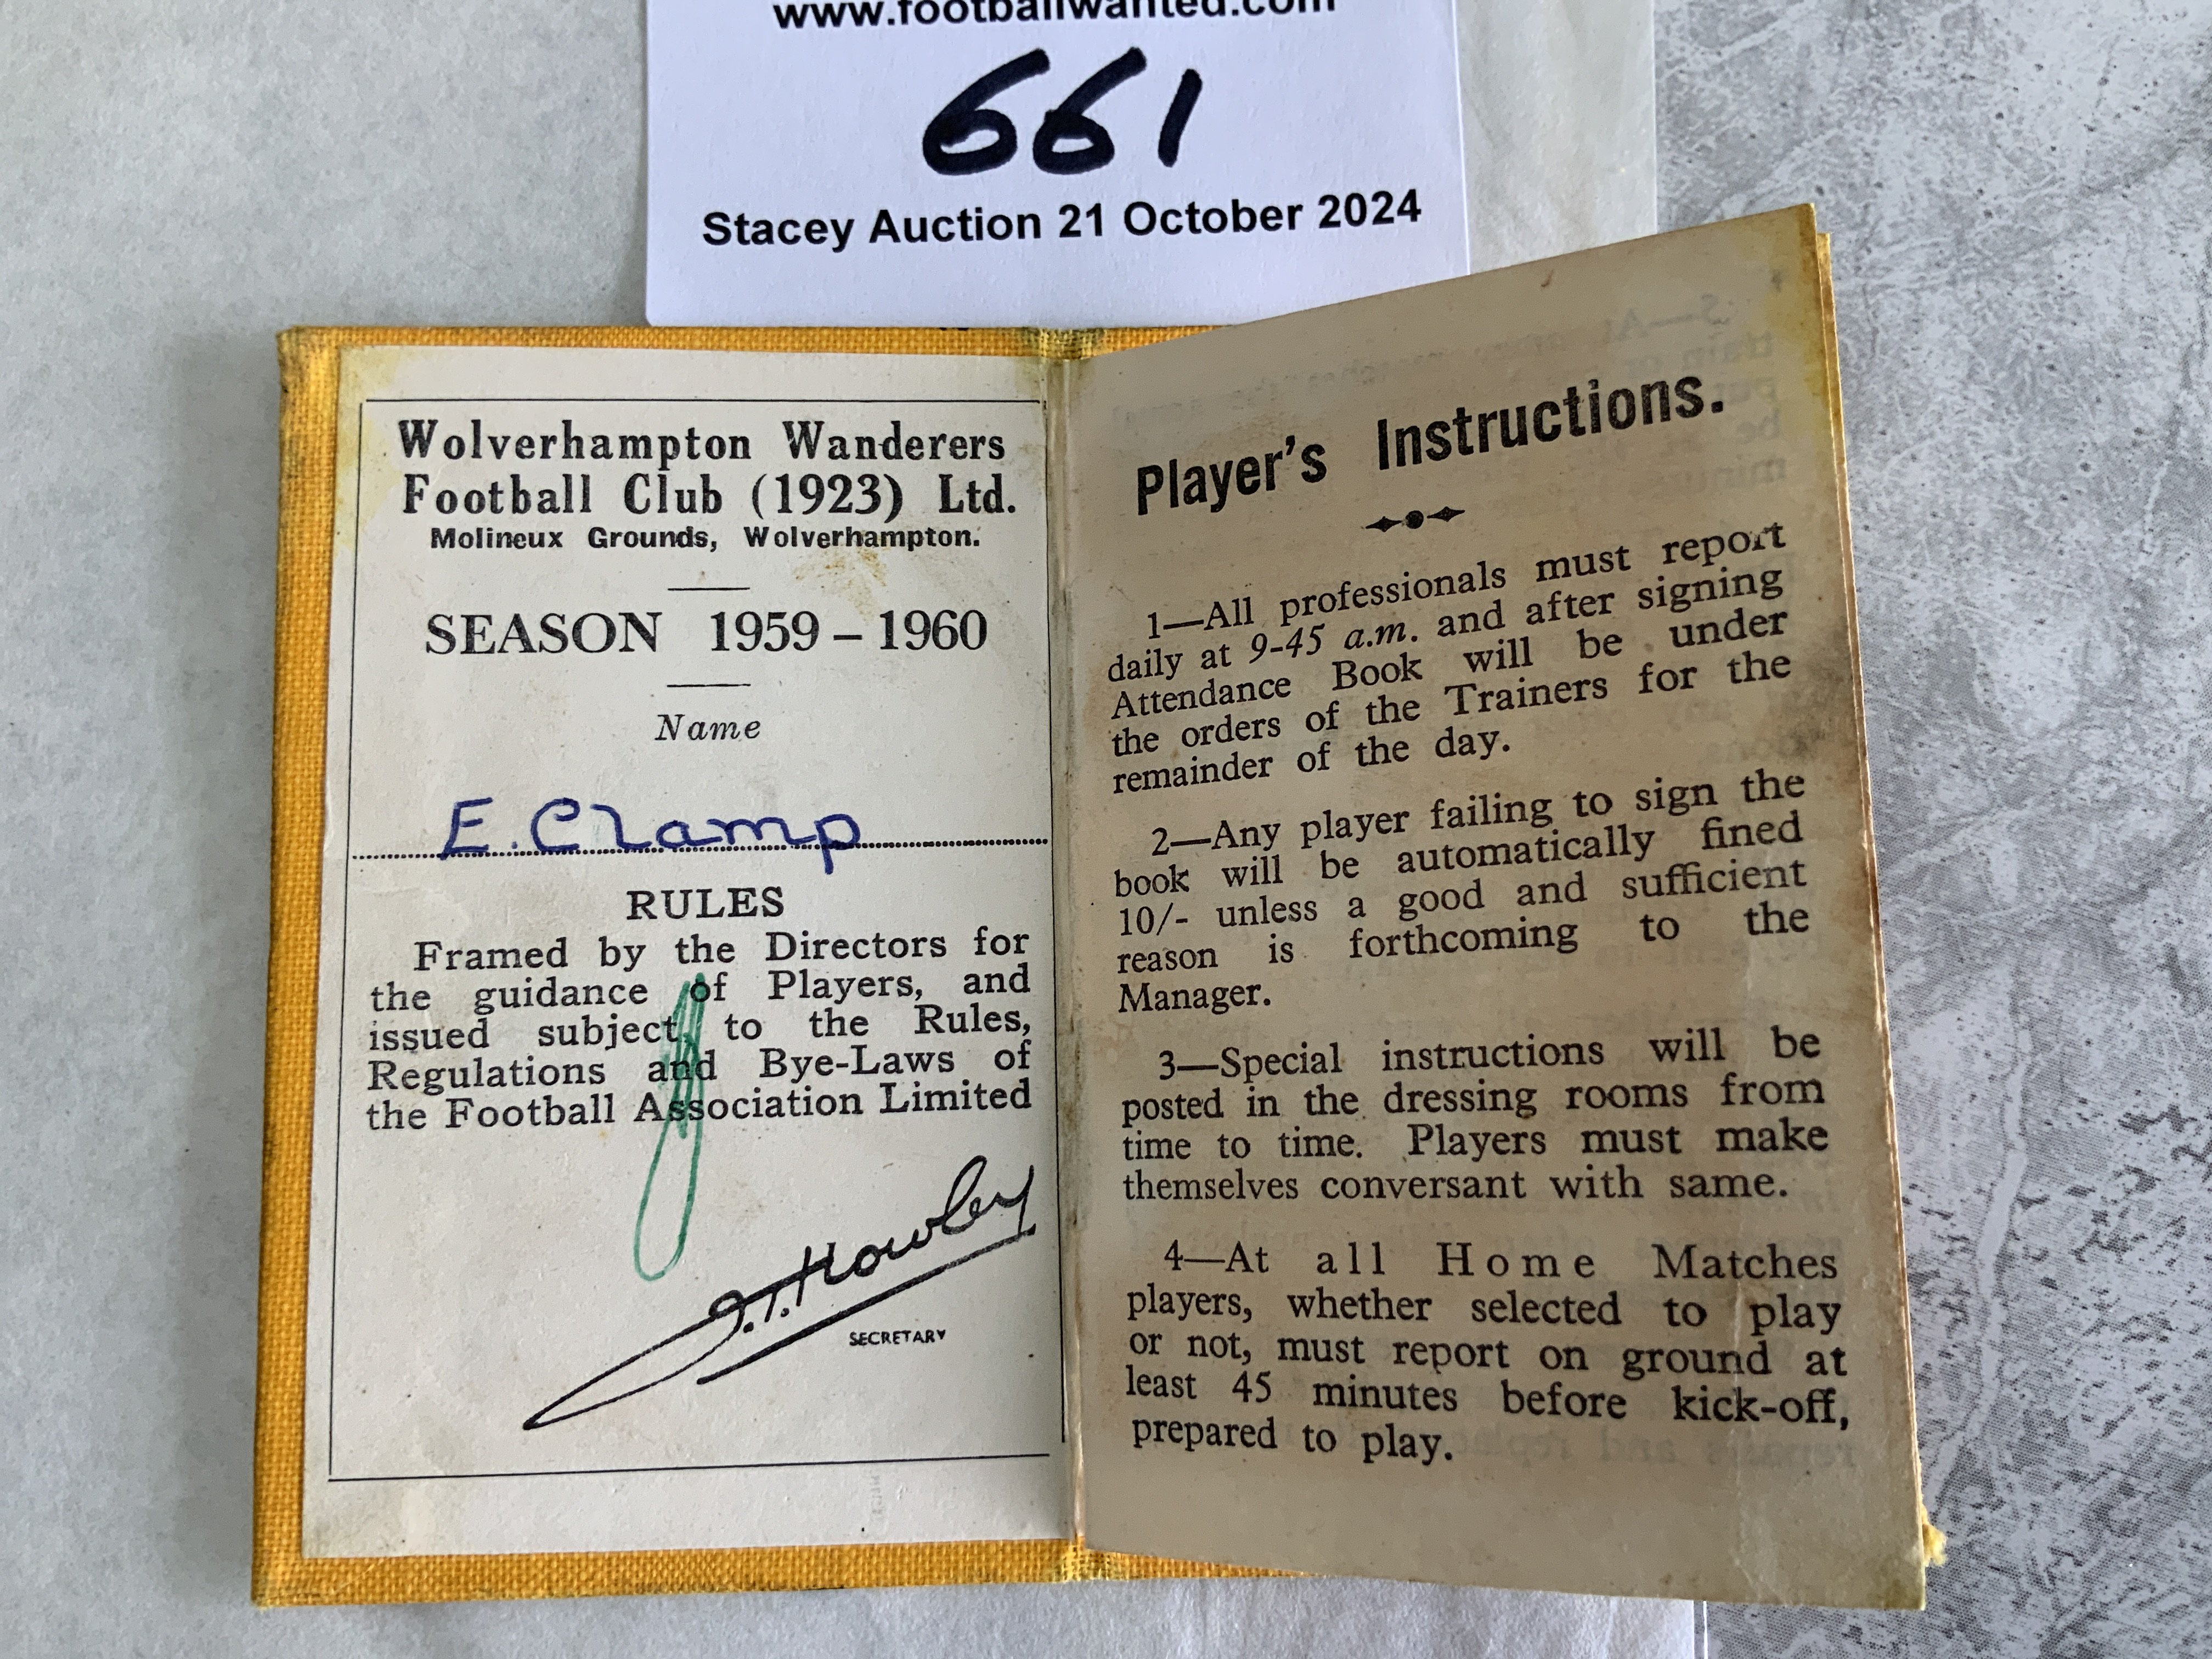 www.footballwanted.com
661
Stacey Auction 21 October 2024
Wolverhampton Wanderers
Football Club (1923) Ltd.
Molineux Grounds, Wolverhampton.
SEASON 1959 – 1960
Name
E. Clamp
RULES
Framed by the Directors for
the guidance of Players, and
issued subject, to the Rules,
Regulations and Bye-Laws of
the Football Association Limited
J.T. Howley
SECRETARY
Player's Instructions.
1—All professionals must report
daily at 9-45 a.m. and after signing
Attendance Book will be under
the orders of the Trainers for the
remainder of the day.
2—Any player failing to sign the
book will be automatically fined
10/- unless a good and sufficient
reason is forthcoming to the
Manager.
3—Special instructions will be
posted in the dressing rooms from
time to time. Players must make
themselves conversant with same.
4—At all Home Matches
players, whether selected to play
or not, must report on ground at
least 45 minutes before kick-off,
prepared to play.